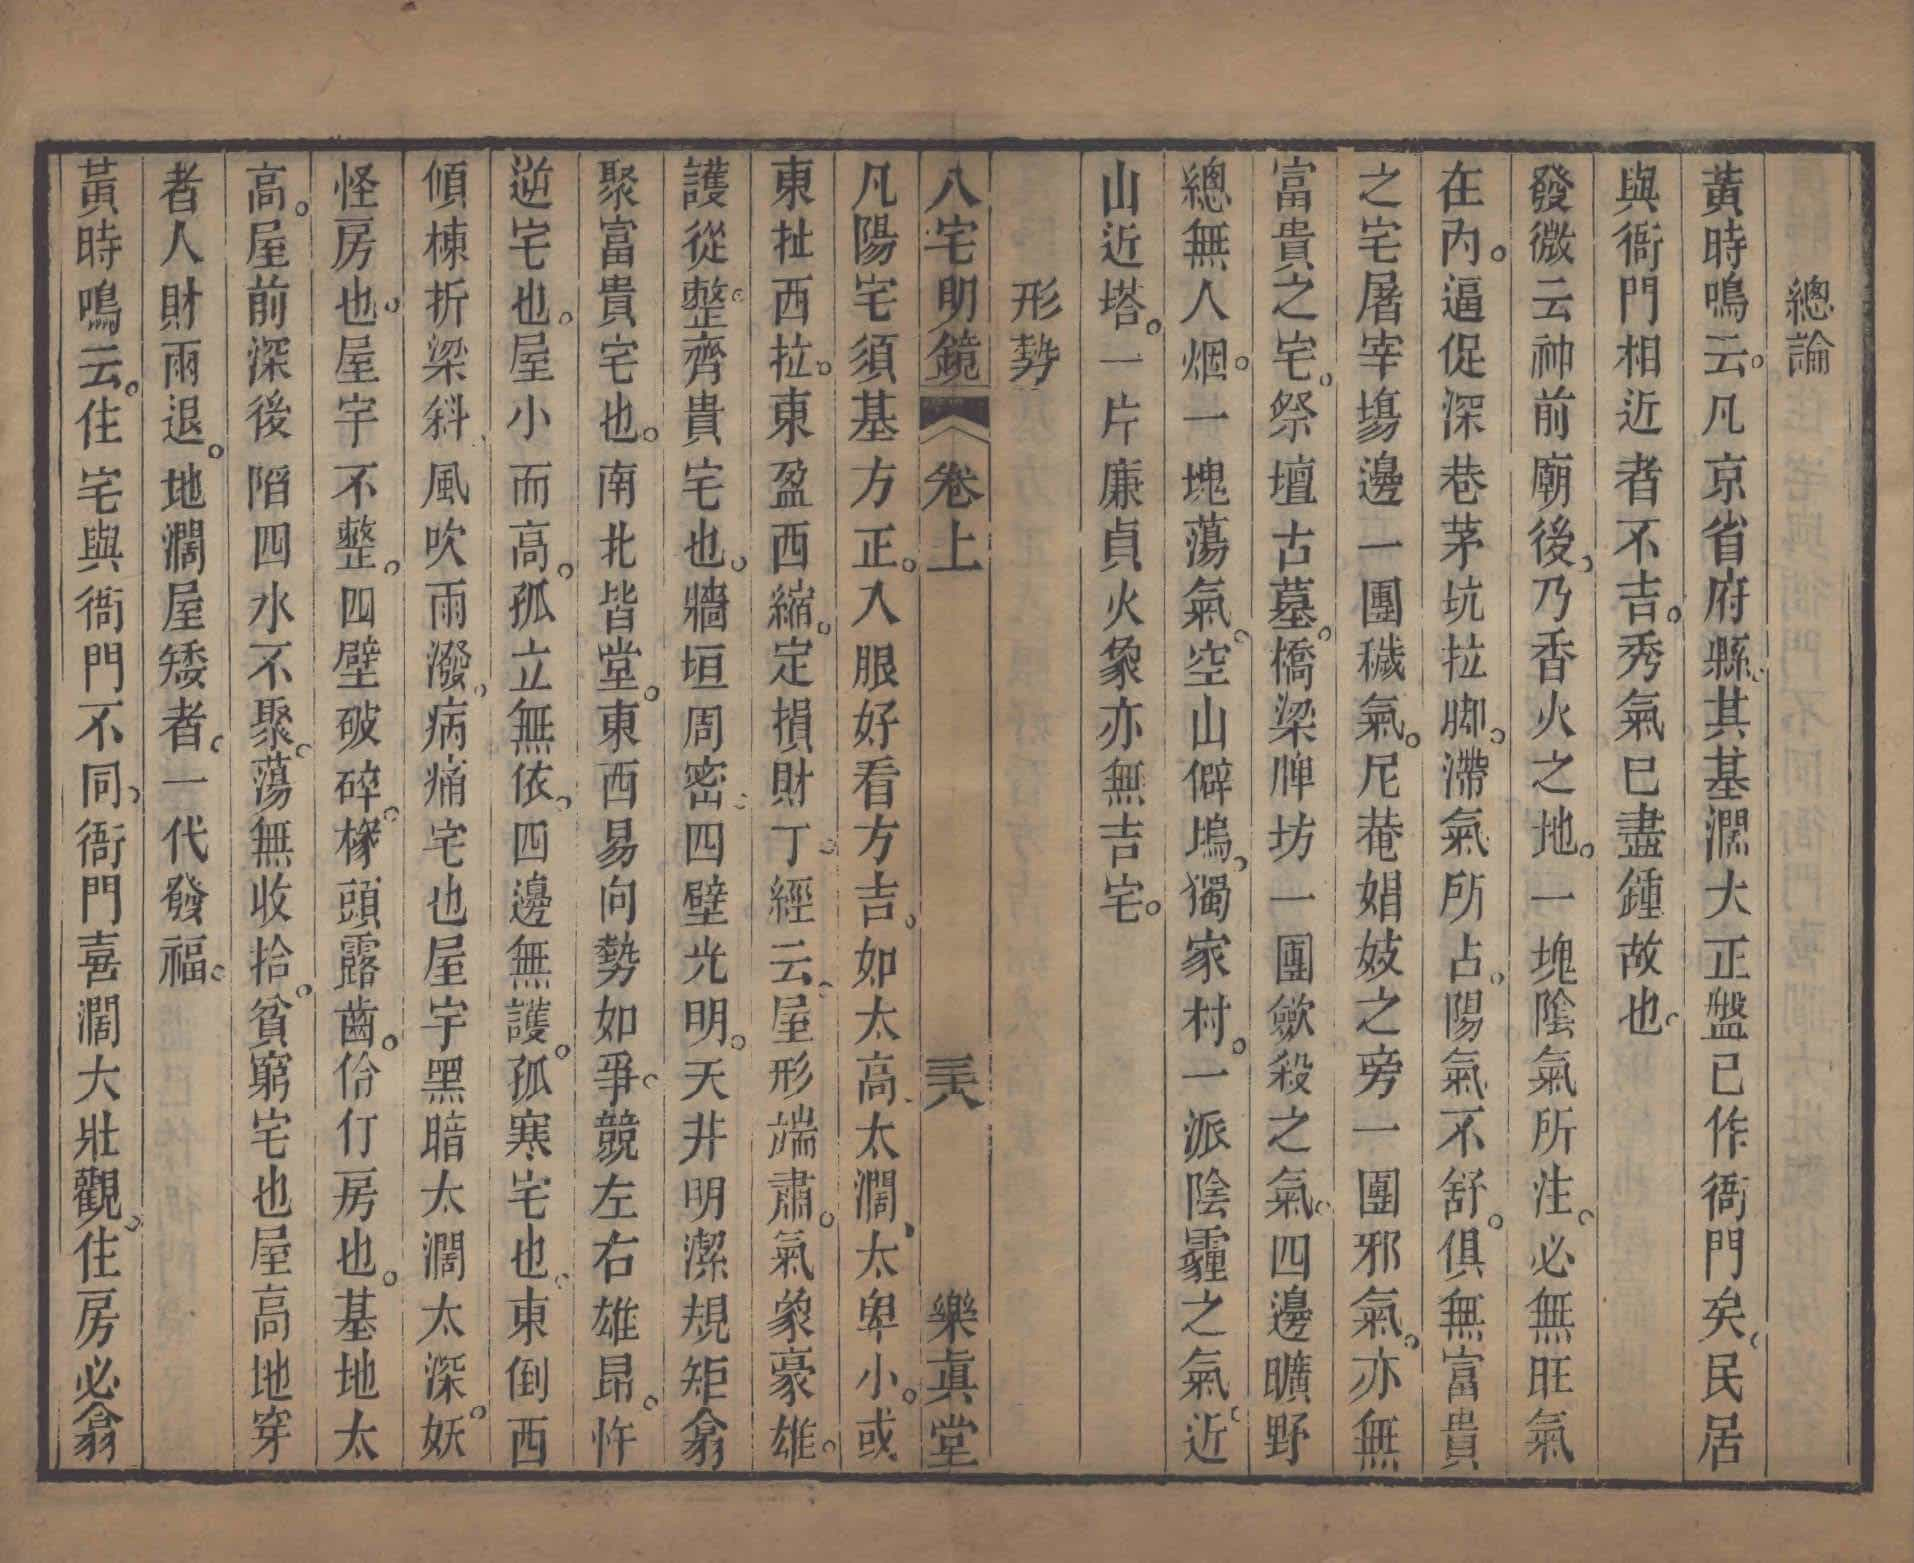 總論
黃時鳴云。凡京省府縣。其基濶大正盤已作衙門矣。民居
與衙門相近者不吉。秀氣已盡鍾故也。
發微云神前廟後。乃香火之地。一塊陰氣所注。必無旺氣
在內。逼促深巷茅坑拉脚。滯氣所占。陽氣不舒。俱無富貴
之宅屠宰塲邊一團穢氣。尼菴娼妓之旁一團邪氣。亦無
富貴之宅。祭壇古墓。橋梁牌坊一團歛殺之氣。四邊曠野
總無人烟。一塊蕩氣。空山僻塢。獨家村。一派陰霾之氣。近
山近塔。一片廉貞火象亦無吉宅。
形勢
八宅明鏡 卷上 三十八 樂眞堂
凡陽宅須基方正。入眼好看方吉。如太高太濶。太卑小。或
東扯西拉。東盈西縮。定損財丁。經云。屋形端肅。氣象豪雄。
護從整。齊貴宅也。牆垣周密。四壁光明。天井明潔規矩翕
聚富貴宅也。南北皆堂。東西易向勢如爭。競左右雄昂。忤
逆宅也。屋小而高。孤立無依。四邊無護。孤寒宅也。東倒西
傾棟折梁斜。風吹雨潑。病痛宅也屋宇黑暗太濶太深。妖
怪房也。屋宇不整。四壁破碎。椽頭露齒。伶仃房也。基地太
高。屋前深後陷四水不聚。蕩無收拾。貧窮宅也屋高地窄
者人財兩退。地濶屋矮者。一代發福。
黃時鳴云。住宅與衙門不同。衙門喜濶大壯觀。住房必翕